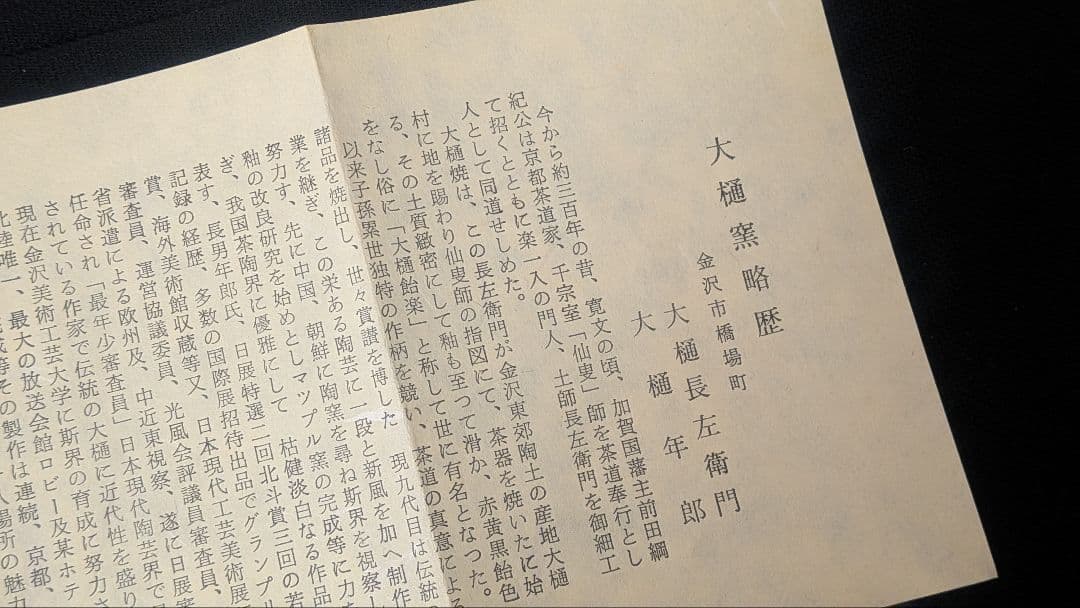 大樋窯略歴
金沢市橋場町
大樋長左衛門
大樋年郎
今から約三百年の昔、寛文の頃、加賀国藩主前田綱
紀公は京都茶道家、千宗室「仙叟」師を茶道奉行とし
て招くとともに楽一入の門人、土師長左衛門を御細工
人として同道せしめた。
大樋焼は、この長左衛門が金沢東郊陶土の産地大樋
村に地を賜わり仙叟師の指図にて、茶器を焼いたに始
る、その土質緻密にして釉も至つて滑か、赤黄黒飴色
をなし俗に「大樋飴楽」と称して世に有名となつた。
以来子孫累世独特の作柄を競い、茶道の真意による
諸品を焼出し、世々賞讃を博した 現九代目は伝統
業を継ぎ、この栄ある陶芸に一段と新風を加へ制作
努力す、先に中国、朝鮮に陶窯を尋ね斯界を視察し
釉の改良研究を始めとしマップル窯の完成等に力
ぎ、我国茶陶界に優雅にして 枯健淡白なる作品
表す、長男年郎氏、日展特選二回北斗賞三回の若
記録の経歴、多数の国際展招待出品でグランプリ
賞、海外美術館収蔵等又、日本現代工芸美術展
審査員、運営協議委員、光風会評議員審査員、
省派遣による欧州及、中近東視察、遂に日展審
任命され「最年少審査員」日本現代陶芸界で
されている作家で伝統の大樋に近代性を盛り
現在金沢美術工芸大学に斯界の育成に努力さ
北陸唯一、最大の放送会館ロビー及某ホテ
成等その製作は連続、京都、
場所の魅力